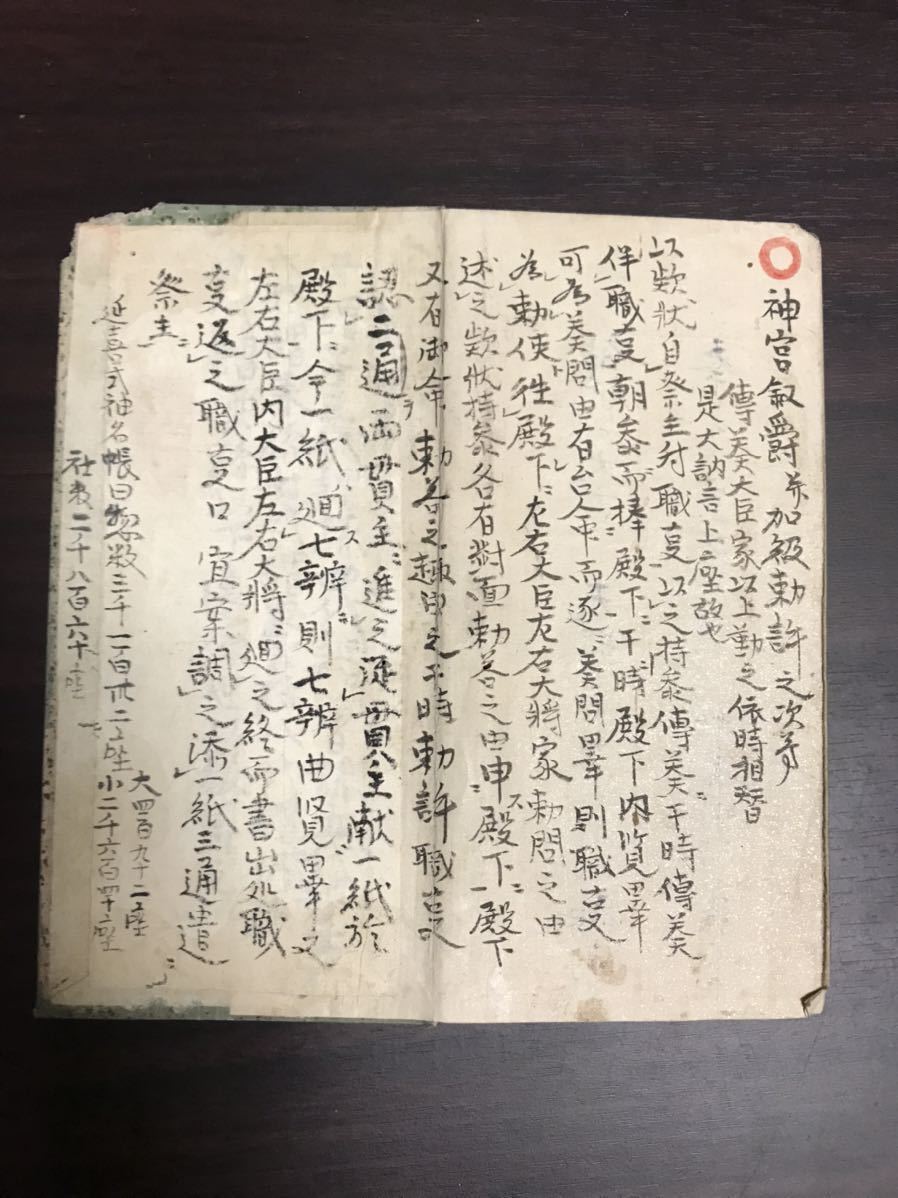 神宮叙爵并加級勅許之次第
傳奏大臣家以上勤之依時相替
是大訥言上座故也
以欵状自祭主附職叓以之持参傳奏ニ于時傳奏
伴職叓朝参而捧殿下ニ于時殿下内覧畢
可為奏問由有台命而逐ニ奏問畢則職叓
為勅使徃殿下ニ左右大臣左右大将家勅問之由
述之欵状持参各有對面勅答之由申ス殿下ニ殿下
又有御命勅答之趣申之于時勅許職叓
認二通而貫主ニ進之返貫主献一紙於
殿下ニ今一紙廻ス七辨ニ則七辨曲覧畢又
左右大臣内大臣左右大将ニ廻之終而書出処職
叓返之職叓口宣案調之添一紙三通遣
祭主ニ
延喜式神名帳曰惣数三千一百卅二座 大四百九十二座
小二千六百四十座
社数二千八百六十一座